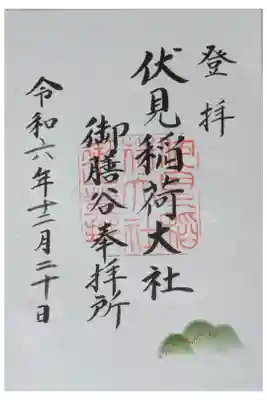 登拝
伏見稲荷大社
御膳谷奉拝所
令和六年十二月二十日